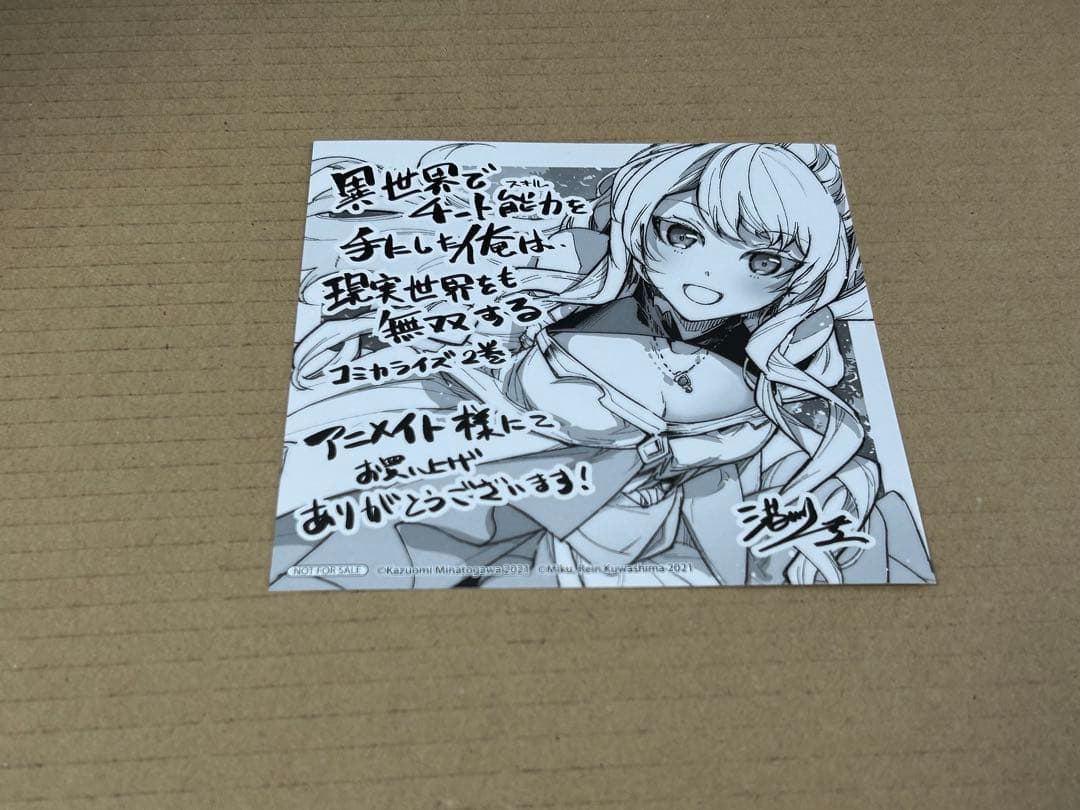 異世界で
チート能力を
スキル
手にした俺は、
現実世界をも
無双する
コミカライズ2巻
アニメイト様にて
お買い上げ
ありがとうございます!
NOT FOR SALE ©Kazuomi Minatogawa 2021 ©Miku, Rein Kuwashima 2021